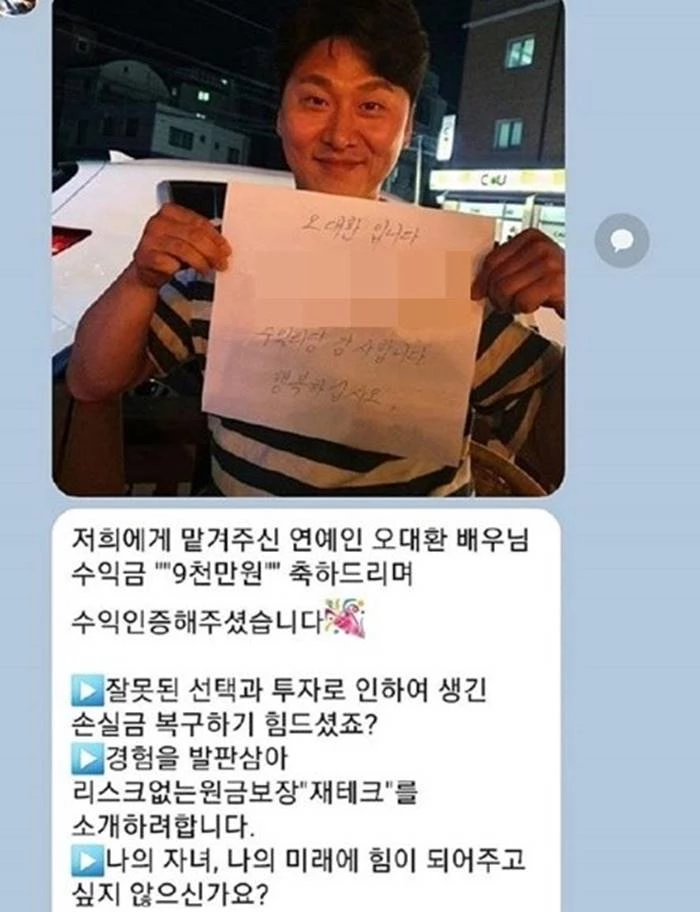 CU
오대환 입니다
수익리딩 감사합니다
행복하십시오.
저희에게 맡겨주신 연예인 오대환 배우님
수익금 ""9천만원"" 축하드리며
수익인증해주셨습니다
잘못된 선택과 투자로 인하여 생긴
손실금 복구하기 힘드셨죠?
경험을 발판삼아
리스크없는원금보장"재테크"를
소개하려합니다.
나의 자녀, 나의 미래에 힘이 되어주고
싶지 않으신가요?